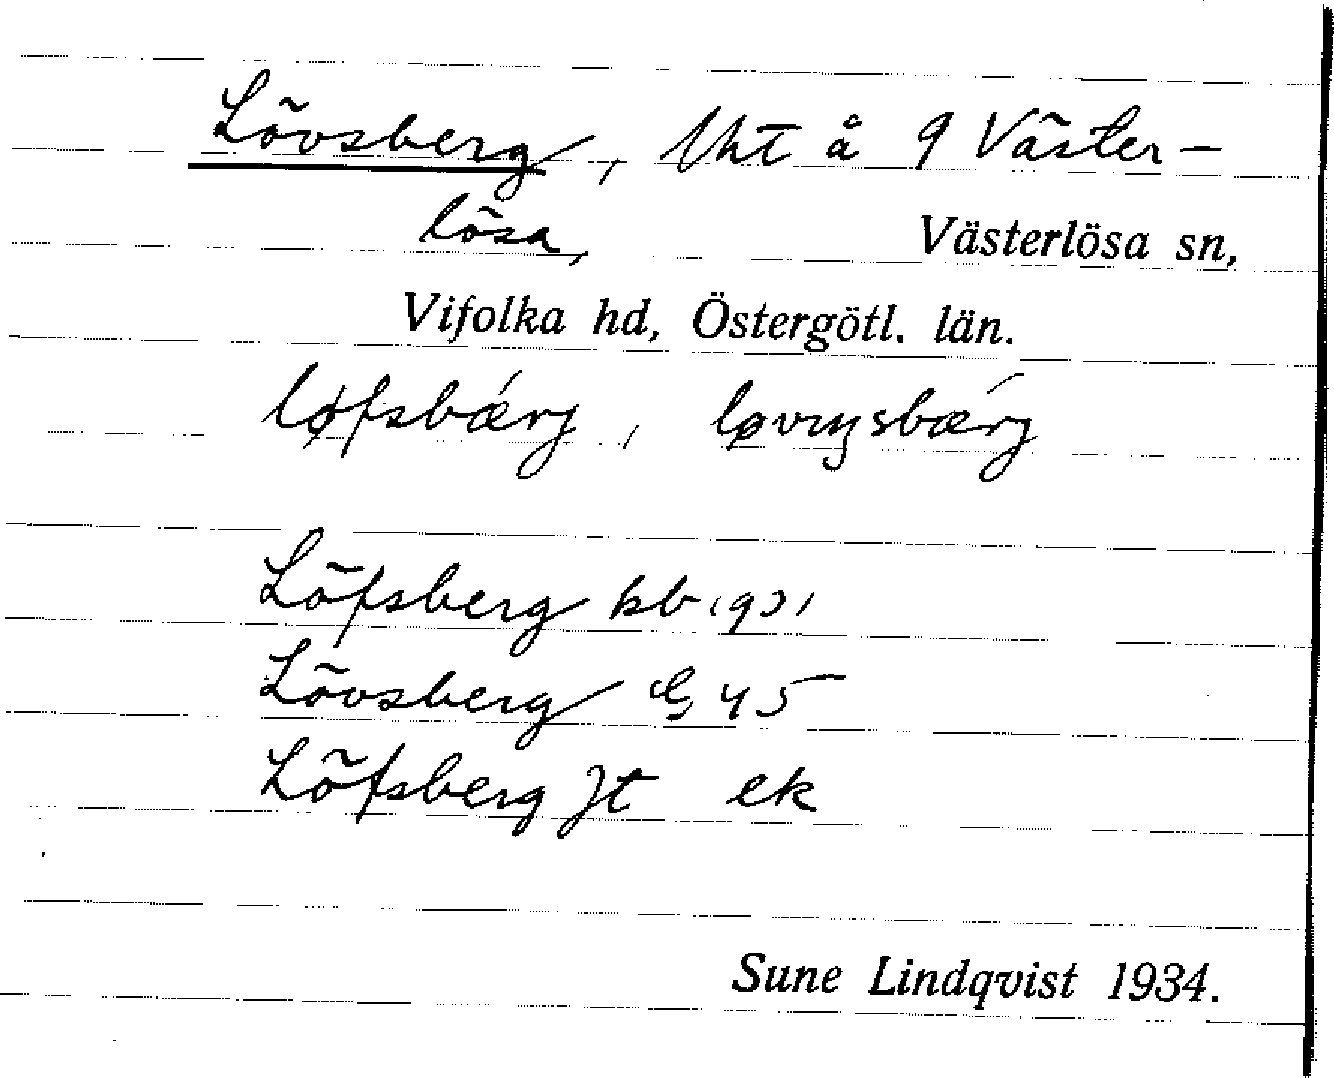 Lövsberg, lht å 9 Väster-
lösa, Västerlösa sn,
Vifolka hd, Östergötl. län.
løfsbǽrj, løvnsbǽrj
Löfsberg kb 1931
Lövsberg G 45
Löfsberg Jt ek
Sune Lindqvist 1934.